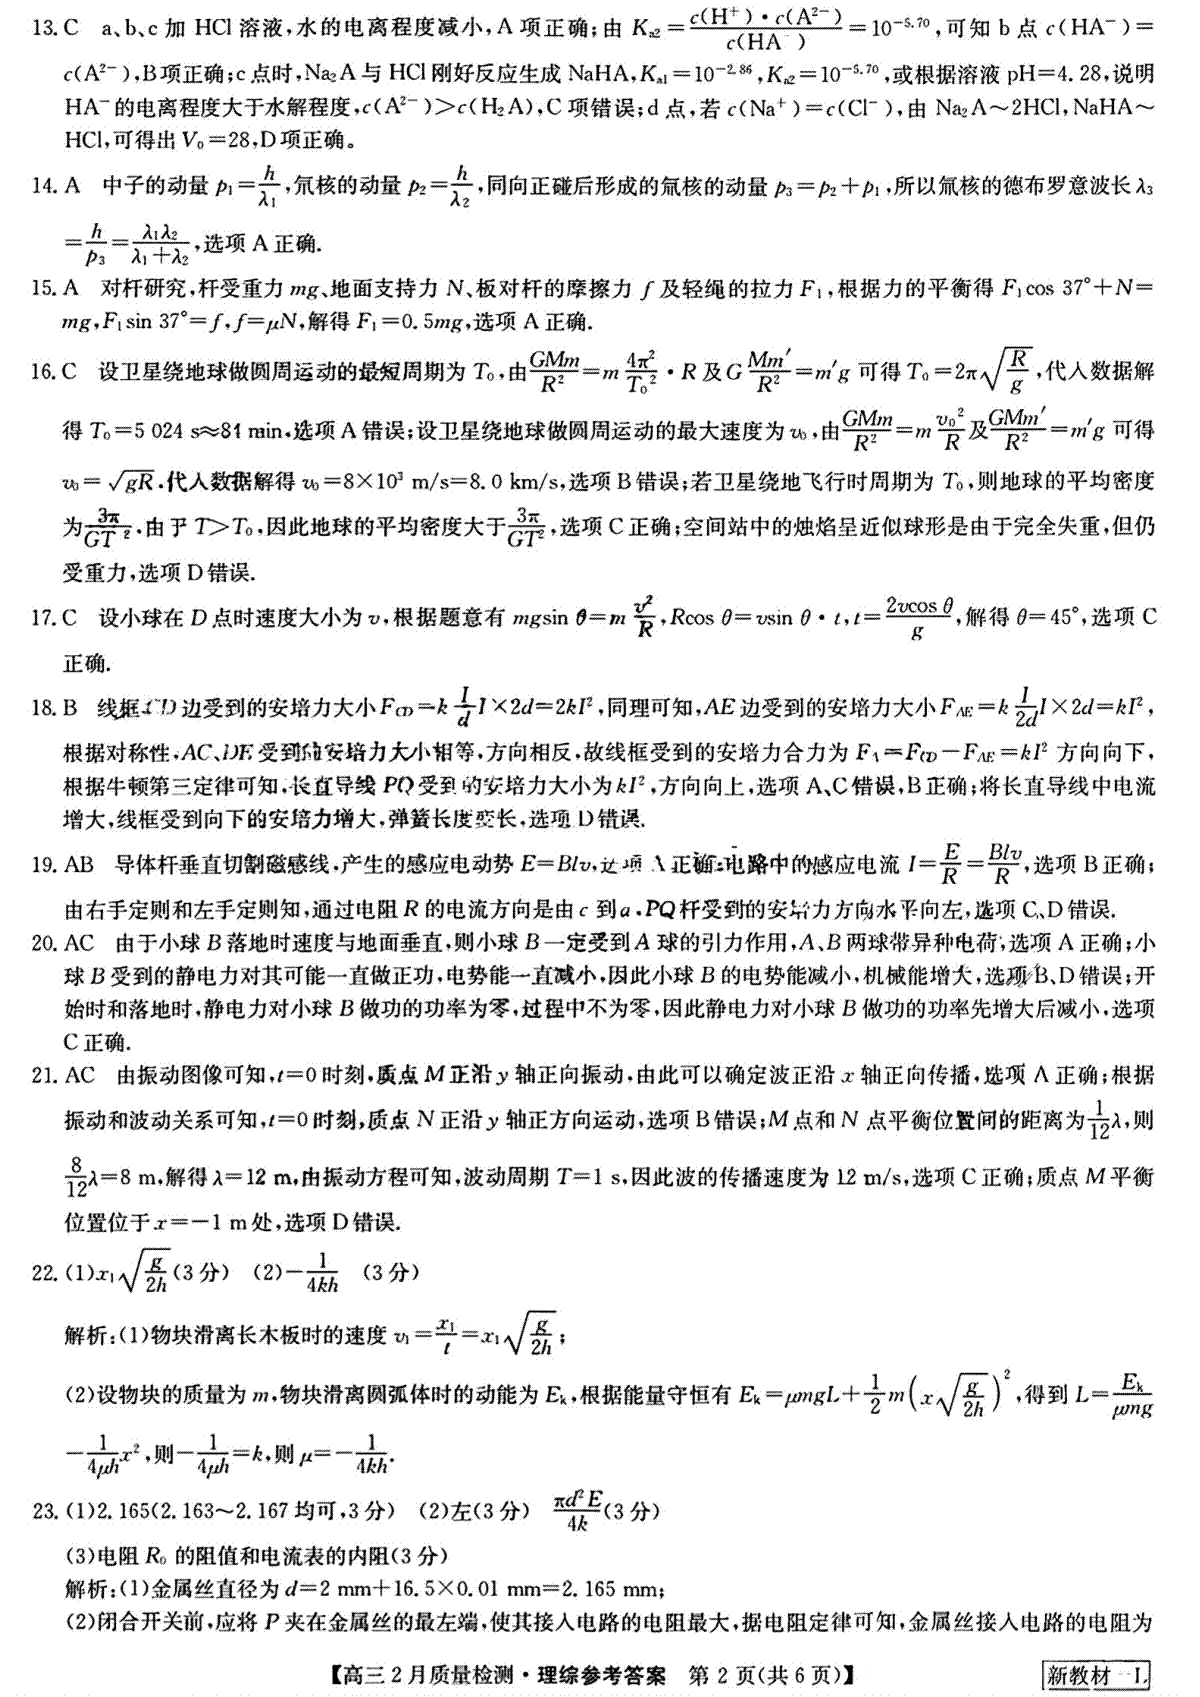 13. C　a、b、c 加 HCl 溶液,水的电离程度减小,A 项正确;由 Ka2 = c(H⁺)·c(A²⁻)/c(HA⁻) = 10^-5.70,可知 b 点 c(HA⁻)=
c(A²⁻),B项正确;c 点时,Na₂A 与 HCl 刚好反应生成 NaHA,Ka1=10^-2.86,Ka2=10^-5.70,或根据溶液 pH=4.28,说明
HA⁻的电离程度大于水解程度,c(A²⁻)>c(H₂A),C 项错误;d 点,若 c(Na⁺)=c(Cl⁻),由 Na₂A~2HCl,NaHA~
HCl,可得出 V₀=28,D 项正确。
14. A　中子的动量 p₁=h/λ₁,氘核的动量 p₂=h/λ₂,同向正碰后形成的氚核的动量 p₃=p₂+p₁,所以氚核的德布罗意波长 λ₃
=h/p₃=λ₁λ₂/(λ₁+λ₂),选项 A 正确.
15. A　对杆研究,杆受重力 mg、地面支持力 N、板对杆的摩擦力 f 及轻绳的拉力 F₁,根据力的平衡得 F₁cos 37°+N=
mg,F₁sin 37°=f,f=μN,解得 F₁=0.5mg,选项 A 正确.
16. C　设卫星绕地球做圆周运动的最短周期为 T₀,由GMm/R²=m 4π²/T₀²·R 及 G Mm′/R²=m′g 可得 T₀=2π√(R/g),代入数据解
得 T₀=5 024 s≈84 min,选项 A 错误;设卫星绕地球做圆周运动的最大速度为 v₀,由GMm/R²=m v₀²/R及GMm′/R²=m′g 可得
v₀=√(gR),代入数据解得 v₀=8×10³ m/s=8.0 km/s,选项 B 错误;若卫星绕地飞行时周期为 T₀,则地球的平均密度
为3π/GT²,由于 T>T₀,因此地球的平均密度大于3π/GT²,选项 C 正确;空间站中的烛焰呈近似球形是由于完全失重,但仍
受重力,选项 D 错误.
17. C　设小球在 D 点时速度大小为 v,根据题意有 mgsin θ=m v²/R,Rcos θ=vsin θ·t,t=2vcos θ/g,解得 θ=45°,选项 C
正确.
18. B　线框 CD 边受到的安培力大小 F_CD=k I/d I×2d=2kI²,同理可知,AE 边受到的安培力大小 F_AE=k I/2d I×2d=kI²,
根据对称性,AC、DE 受到的安培力大小相等,方向相反,故线框受到的安培力合力为 F_A=F_CD-F_AE=kI² 方向向下,
根据牛顿第三定律可知,长直导线 PQ 受到的安培力大小为 kI²,方向向上,选项 A、C 错误,B 正确;将长直导线中电流
增大,线框受到向下的安培力增大,弹簧长度变长,选项 D 错误.
19. AB　导体杆垂直切割磁感线,产生的感应电动势 E=Blv,选项 A 正确;电路中的感应电流 I=E/R=Blv/R,选项 B 正确;
由右手定则和左手定则知,通过电阻 R 的电流方向是由 c 到 a,PQ 杆受到的安培力方向水平向左,选项 C、D 错误.
20. AC　由于小球 B 落地时速度与地面垂直,则小球 B 一定受到 A 球的引力作用,A、B 两球带异种电荷,选项 A 正确;小
球 B 受到的静电力对其可能一直做正功,电势能一直减小,因此小球 B 的电势能减小,机械能增大,选项 B、D 错误;开
始时和落地时,静电力对小球 B 做功的功率为零,过程中不为零,因此静电力对小球 B 做功的功率先增大后减小,选项
C 正确.
21. AC　由振动图像可知,t=0 时刻,质点 M 正沿 y 轴正向振动,由此可以确定波正沿 x 轴正向传播,选项 A 正确;根据
振动和波动关系可知,t=0 时刻,质点 N 正沿 y 轴正方向运动,选项 B 错误;M 点和 N 点平衡位置间的距离为1/12λ,则
8/12λ=8 m,解得 λ=12 m,由振动方程可知,波动周期 T=1 s,因此波的传播速度为 12 m/s,选项 C 正确;质点 M 平衡
位置位于 x=-1 m 处,选项 D 错误.
22. (1)x₁√(g/2h)(3 分)　(2)-1/4kh　(3 分)
解析:(1)物块滑离长木板时的速度 v₁=x₁/t=x₁√(g/2h);
(2)设物块的质量为 m,物块滑离圆弧体时的动能为 Eₖ,根据能量守恒有 Eₖ=μmgL+1/2 m(x√(g/2h))²,得到 L=Eₖ/μmg
-1/4μh x²,则-1/4μh=k,则 μ=-1/4kh.
23. (1)2.165(2.163~2.167 均可,3 分)　(2)左(3 分)　πd²E/4k(3 分)
(3)电阻 R₀ 的阻值和电流表的内阻(3 分)
解析:(1)金属丝直径为 d=2 mm+16.5×0.01 mm=2.165 mm;
(2)闭合开关前,应将 P 夹在金属丝的最左端,使其接入电路的电阻最大,据电阻定律可知,金属丝接入电路的电阻为
【高三 2 月质量检测·理综参考答案　第 2 页(共 6 页)】
新教材—L